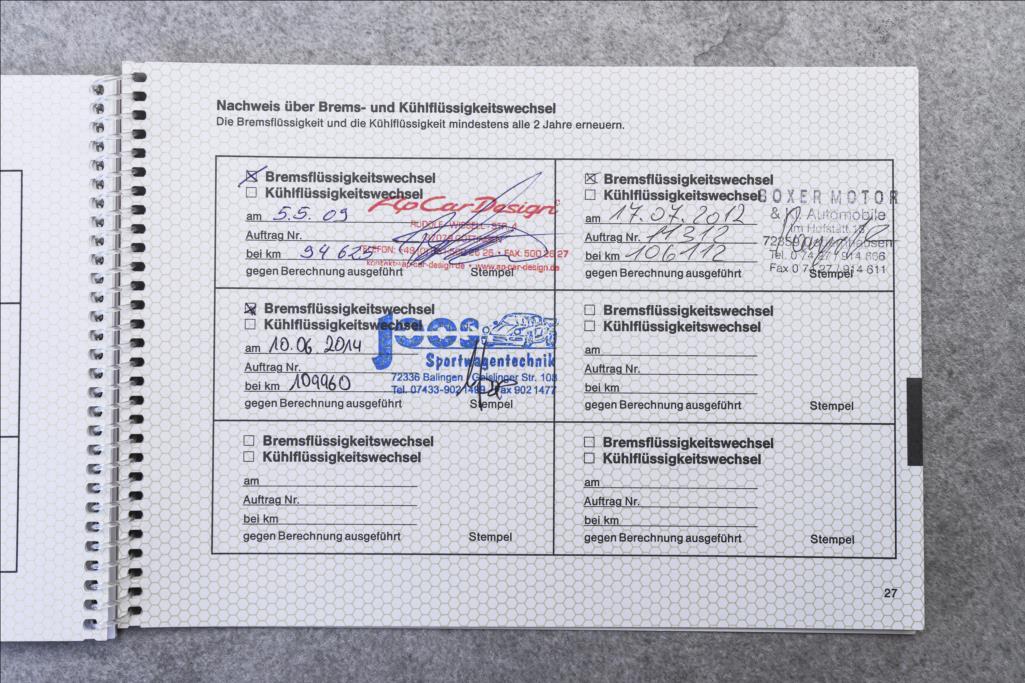 Nachweis über Brems- und Kühlflüssigkeitswechsel
Die Bremsflüssigkeit und die Kühlflüssigkeit mindestens alle 2 Jahre erneuern.
Bremsflüssigkeitswechsel
Kühlflüssigkeitswechsel
am 5.5. 09
Auftrag Nr.
bei km 94 625
gegen Berechnung ausgeführt Stempel
Ap Car Design
RUDOLF-WISSELL-STR.
TELEFON: FAX: 500 26 27
kontakt@ap-car-design.de • www.ap-car-design.de
Bremsflüssigkeitswechsel
Kühlflüssigkeitswechsel
am 17.07.2012
Auftrag Nr. 11312
bei km 106112
gegen Berechnung ausgeführt Stempel
BOXER MOTOR
& Automobile
Im Hofstatt
Tel. 0 74 27 / 914 666
Fax 0 74 27 / 914 611
Bremsflüssigkeitswechsel
Kühlflüssigkeitswechsel
am 10.06.2014
Auftrag Nr.
bei km 109960
gegen Berechnung ausgeführt Stempel
joos
Sportwagentechnik
72336 Balingen Geislinger Str. 108
Tel. 07433-902 1499 Fax 902 1477
Bremsflüssigkeitswechsel
Kühlflüssigkeitswechsel
am
Auftrag Nr.
bei km
gegen Berechnung ausgeführt Stempel
Bremsflüssigkeitswechsel
Kühlflüssigkeitswechsel
am
Auftrag Nr.
bei km
gegen Berechnung ausgeführt Stempel
Bremsflüssigkeitswechsel
Kühlflüssigkeitswechsel
am
Auftrag Nr.
bei km
gegen Berechnung ausgeführt Stempel
27